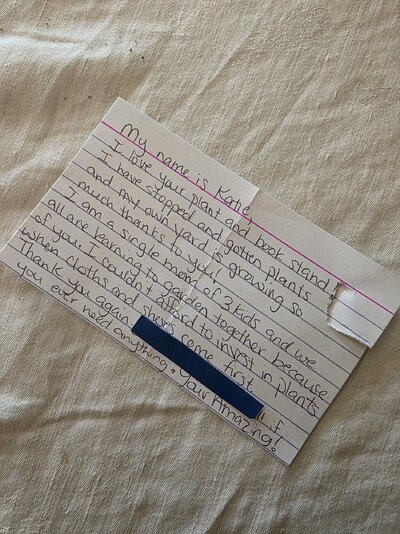 My name is Katie,
I love your plant and book stand!
I have stopped and gotten plants
and my own yard is growing so
much thanks to you!
I am a single mom of 3 kids and we
all are learning to garden together because
of you. I couldn't afford to invest in plants
when cloths and shoes come first.
Thank you again if
you ever need anything. Your Amazing!